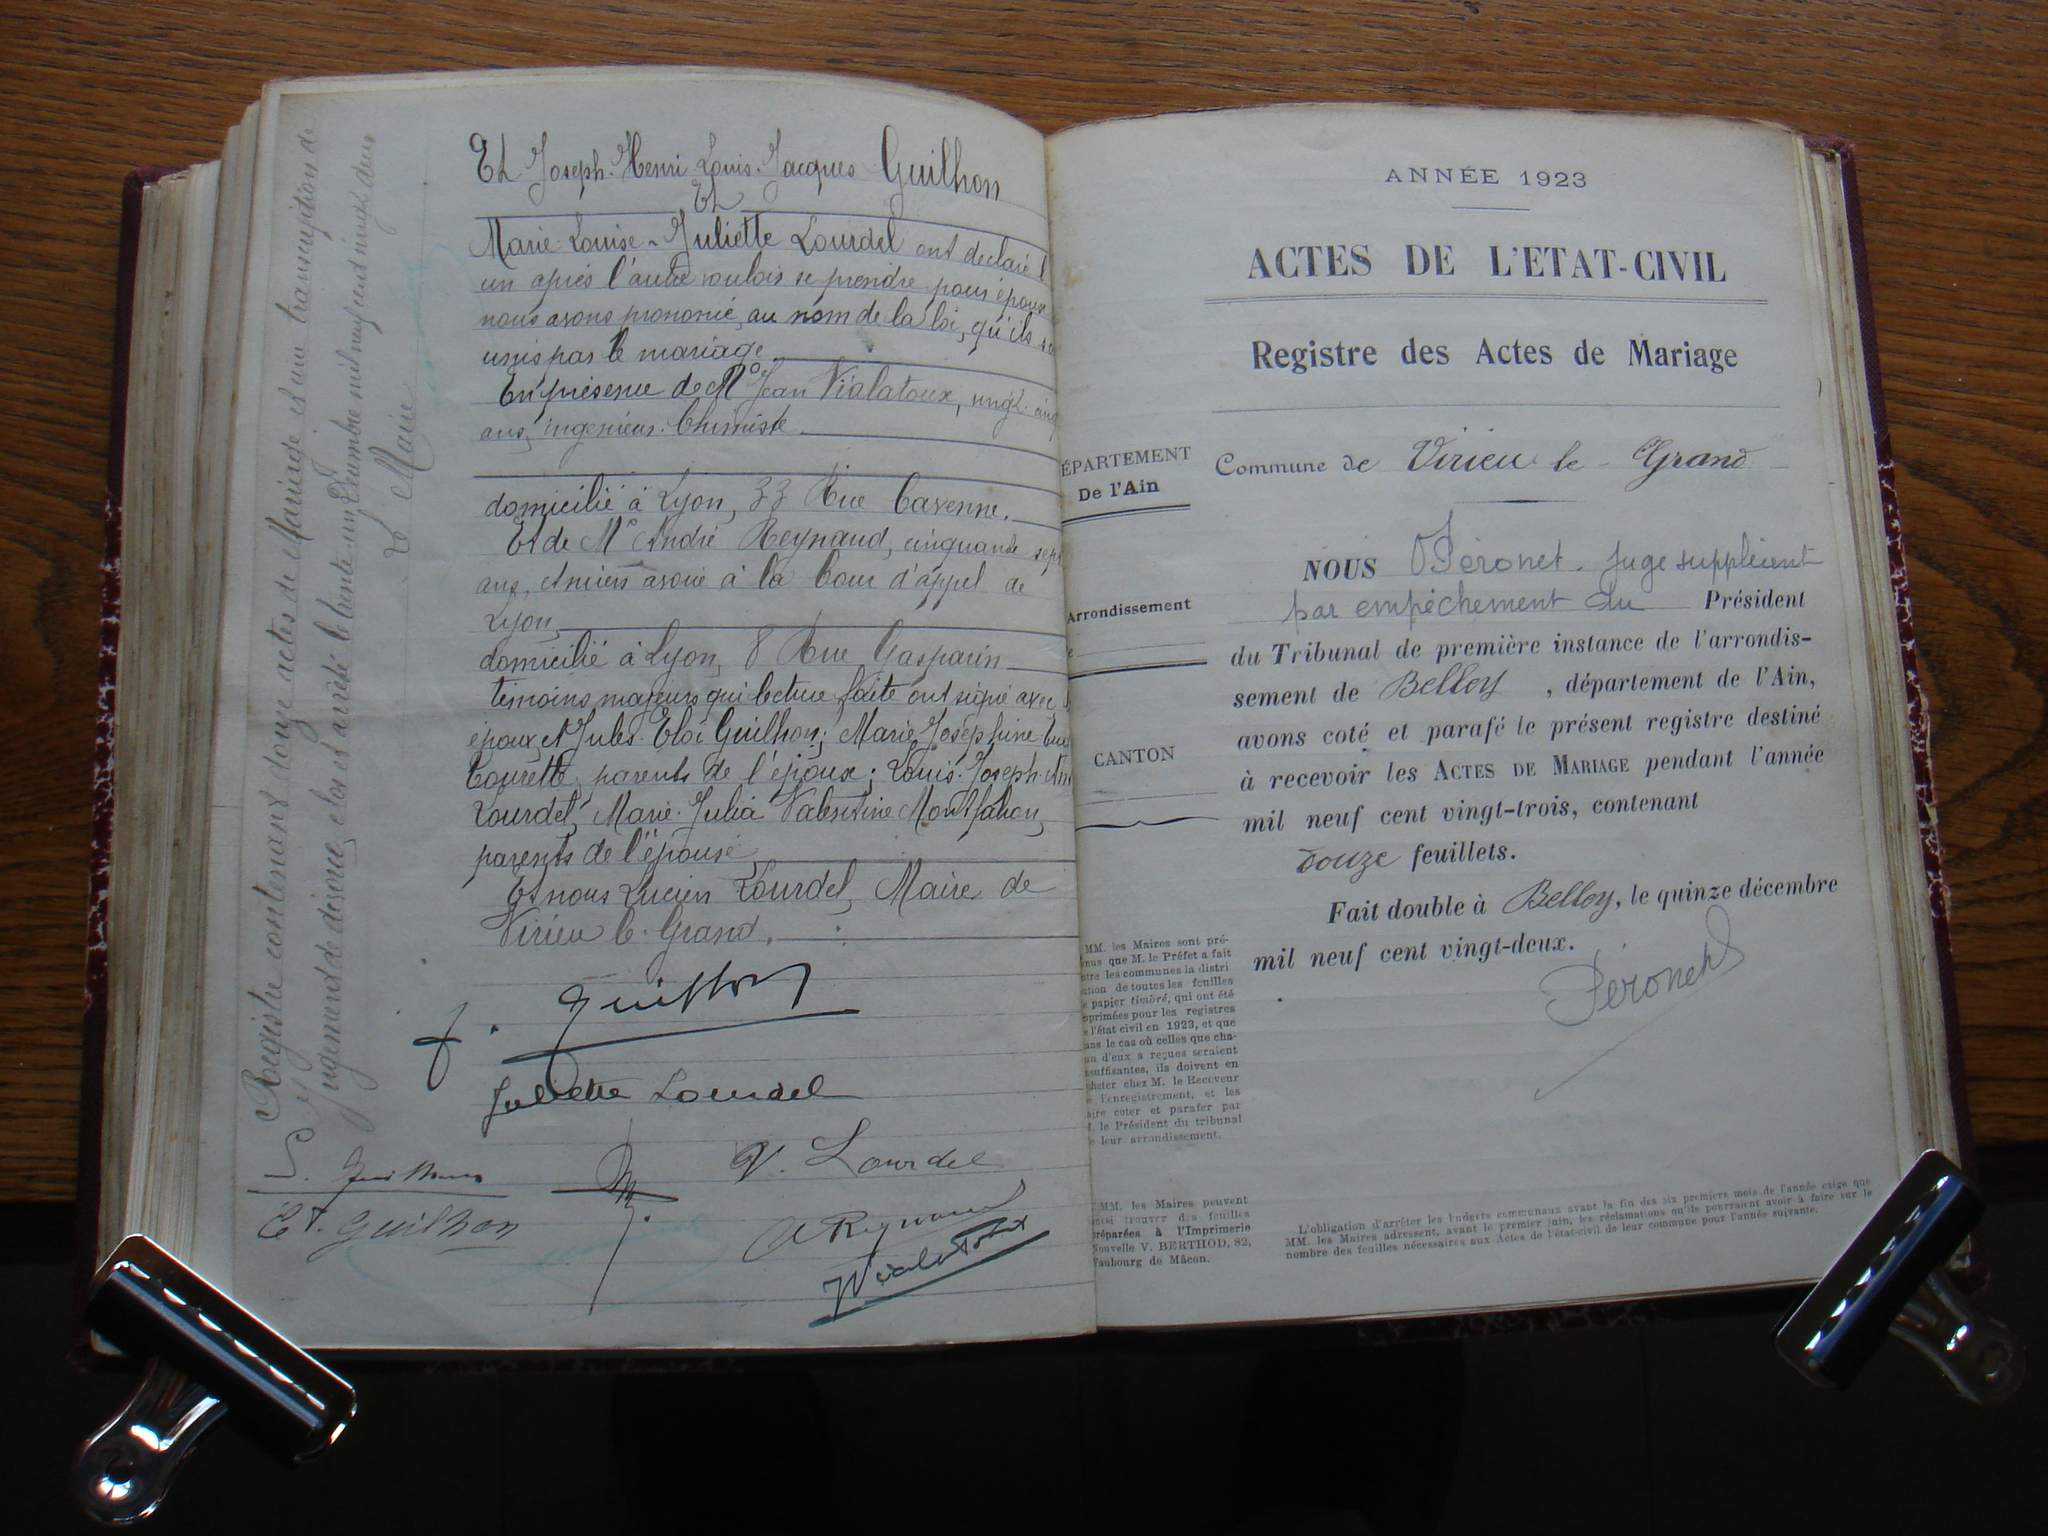 Et Joseph-Henri Louis-Jacques Guilhon
Et
Marie-Louise-Juliette Lourdel ont déclaré l'
un après l'autre vouloir se prendre pour époux
nous avons prononcé, au nom de la loi, qu'ils
unis par le mariage
En présence de Mr Jean Vialatoux, vingt-cinq
ans, ingénieur-Chimiste
domicilié à Lyon, 33 Rue Cavenne.
Et de Mr André Reynaud, cinquante sept
ans, Ancien avoué à la Cour d'appel de
Lyon
domicilié à Lyon, 8 Rue Gasparin
témoins majeurs qui lecture faite ont signé avec
époux, et Jules-Eloi Guilhon; Marie Joséphine
Tourette, parents de l'époux; Louis-Joseph
Lourdel, Marie-Julia Valentine Montfalcon,
parents de l'épouse
Et nous Lucien Lourdel, Maire de
Virieu le-Grand.
J. Guilhon
Juliette Lourdel
V. Lourdel
Et. Guilhon
A Reynaud
JVialatoux
Registre contenant douze actes de Mariage et une transcription de
jugement de divorce, clos et arrêté le trente-un Décembre mil neuf cent vingt deux
Le Maire
ANNÉE 1923
ACTES DE L'ETAT-CIVIL
Registre des Actes de Mariage
ÉPARTEMENT
De l'Ain
Commune de Virieu le-Grand
NOUS Péronet. Juge suppléent
par empêchement du Président
Arrondissement
du Tribunal de première instance de l'arrondis-
sement de Belley, département de l'Ain,
avons coté et parafé le présent registre destiné
CANTON
à recevoir les ACTES DE MARIAGE pendant l'année
mil neuf cent vingt-trois, contenant
douze feuillets.
Fait double à Belley, le quinze décembre
mil neuf cent vingt-deux.
Péronet
MM. les Maires sont pré-
nus que M. le Préfet a fait
tre les communes la distri
tion de toutes les feuilles
papier timbré, qui ont été
primées pour les registres
l'état civil en 1923, et que
ans le cas où celles que cha-
un d'eux a reçues seraient
suffisantes, ils doivent en
cheter chez M. le Receveur
l'enregistrement, et les
aire coter et parafer par
M. le Président du tribunal
leur arrondissement.
MM. les Maires peuvent
aussi trouver des feuilles
préparées à l'Imprimerie
Nouvelle V. BERTHOD, 82,
Faubourg de Mâcon.
L'obligation d'arrêter les budgets communaux avant la fin des six premiers mois de l'année exige que
MM. les Maires adressent, avant le premier juin, les réclamations qu'ils pourraient avoir à faire sur le
nombre des feuilles nécessaires aux Actes de l'état-civil de leur commune pour l'année suivante.